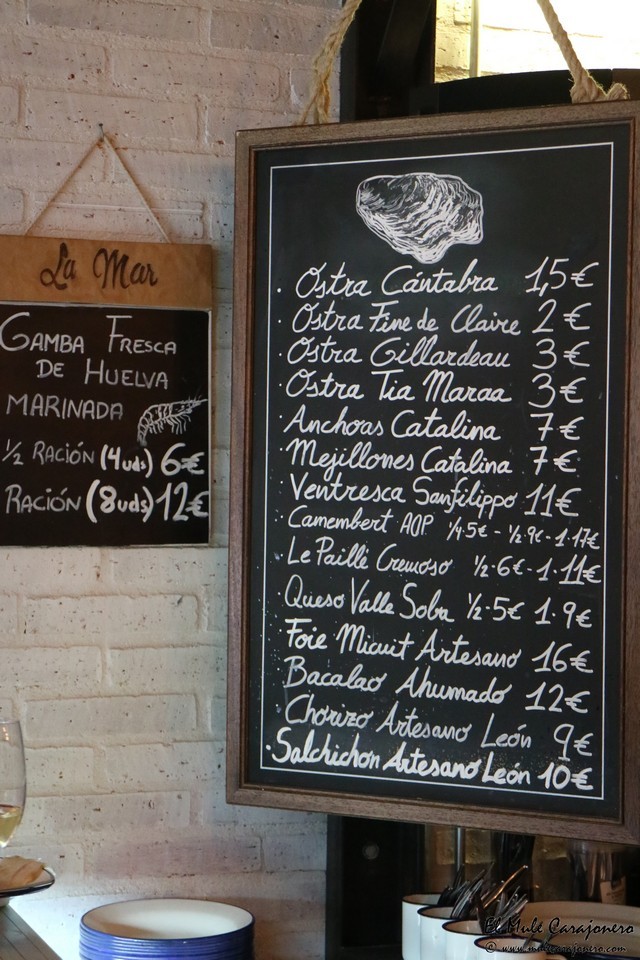 La Mar
GAMBA FRESCA
DE HUELVA
MARINADA
½ RACIÓN (4uds) 6€
RACIÓN (8uds) 12€
· Ostra Cántabra 1,5€
· Ostra Fine de Claire 2€
· Ostra Gillardeau 3€
· Ostra Tia Maraa 3€
· Anchoas Catalina 7€
· Mejillones Catalina 7€
· Ventresca Sanfilippo 11€
· Camembert AOP ¼.5€ - ½.9€ - 1.17€
· Le Paillè Cremoso ½-6€ - 1.11€
· Queso Valle Soba ½-5€ 1.9€
· Foie Micuit Artesano 16€
· Bacalao Ahumado 12€
· Chorizo Artesano León 9€
· Salchichon Artesano León 10€
El Mule Carajonero
@ www.mulecarajonero.com